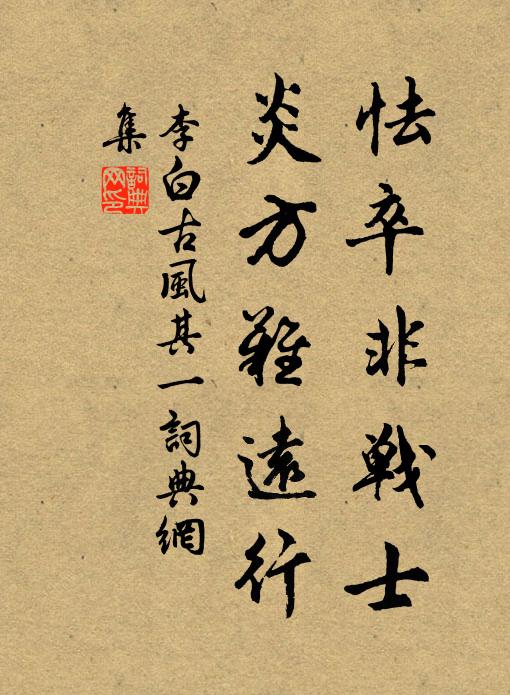 怯卒非戰士
炎方難遠行
李白古風其一詞典網
集
詞典
网印